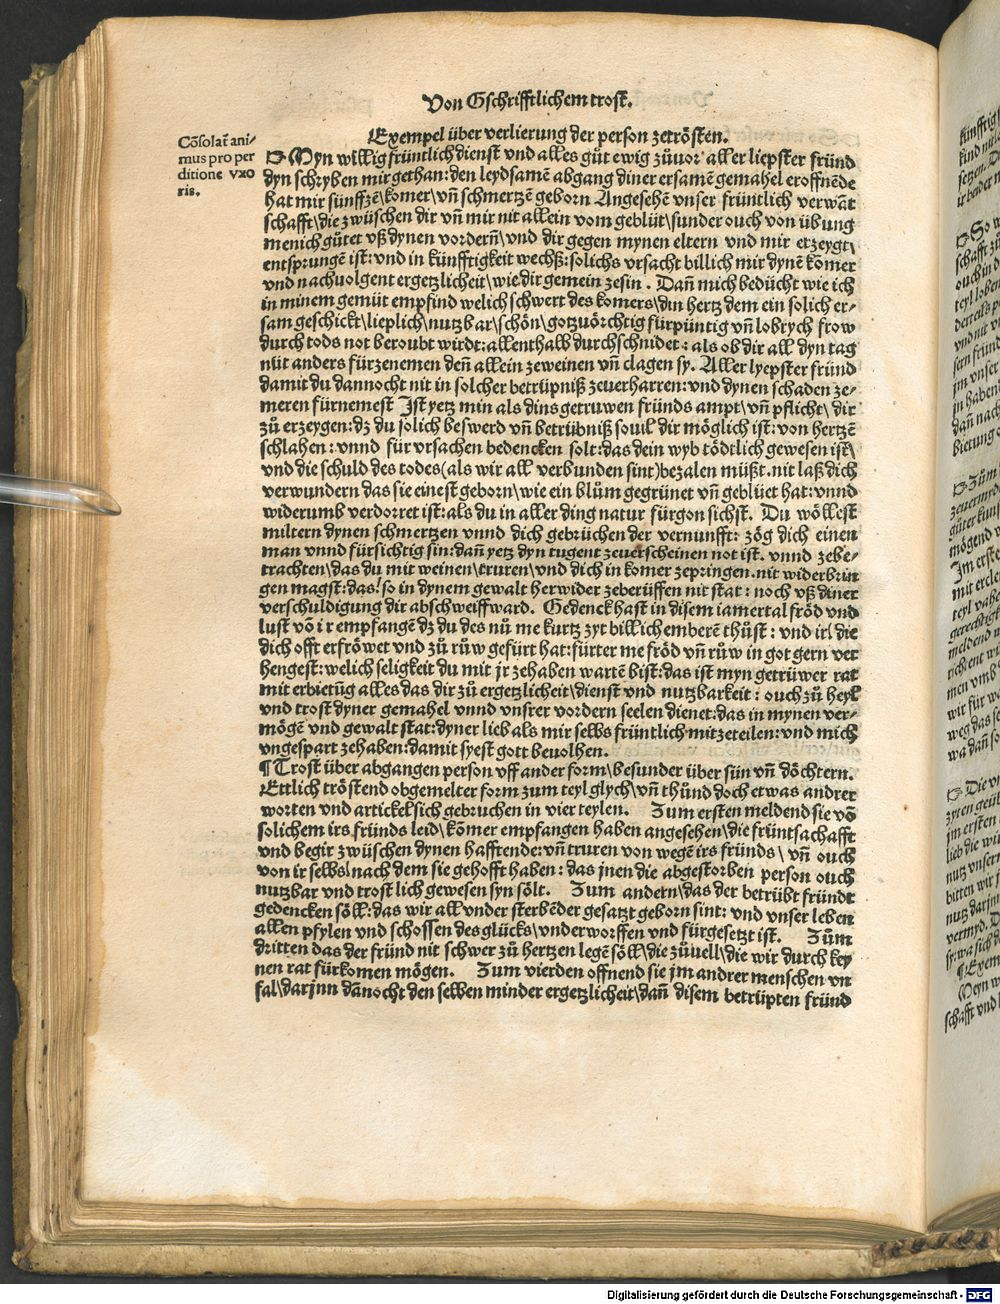 Von Gschrifftlichem trost.
Exempel über verlierung der person zetrösten.
Cōsolat̄ ani-
mus pro per
ditione vxo
ris.
Myn willig früntlich dienst vnd alles gůt ewig zůuor aller liepster fründ
dyn schryben mir gethan: den leydsamē abgang diner ersamē gemahel eroffnēde
hat mir sünffzē\komer\vn̄ schmertzē geborn Angesehē vnser früntlich verwāt
schafft\die zwüschen dir vn̄ mir nit allein vom geblüt\sunder ouch von übung
menich gůtet vß dynen vordern̄\vnd dir gegen mynen eltern vnd mir erzeygt\
entsprungē ist: vnd in künfftigkeit wechß: solichs vrsacht billich mir dynē kōmer
vnd nachuolgent ergetzlicheit\wie dir gemein ze sin. Dan̄ mich bedücht wie ich
in minem gemüt empfind welich schwert des komers\din hertz dem ein solich er-
sam geschickt\lieplich\nutzbar\schön\gotzuörchtig fürpüntig vn̄ lobrych frow
durch tods not beroubt wirdt: allenthalb durchschnidet: als ob dir all dyn tag
nüt anders fürzenemen den̄ allein zeweinen vn̄ clagen sy. Aller lyepster fründ
damit du dannocht nit in solcher betrüpniß zeuerharren: vnd dynen schaden ze-
meren fürnemest Ist yetz min als dins getruwen fründs ampt\vn̄ pflicht\dir
zů erzeygen: dz du solich beswerd vn̄ betrübniß souil dir möglich ist: von hertzē
schlahen: vnnd für vrsachen bedencken solt: das dein wyb tödtlich gewesen ist\
vnd die schuld des todes (als wir all verbunden sint) bezalen müßt. nit laß dich
verwundern das sie einest geborn\wie ein blům gegrünet vn̄ geblüet hat: vnnd
widerumb verdorret ist: als du in aller ding natur fürgon sichst. Du wöllest
miltern dynen schmertzen vnnd dich gebrüchen der vernunfft: zög dich einen
man vnnd fürsichtig sin: dan̄ yetz dyn tugent zeuerscheinen not ist. vnnd zebe-
trachten\das du mit weinen\truren\vnd dich in komer zepringen. nit widerbrin
gen magst: das\so in dynem gewalt herwider zeberüffen nit stat: noch vß diner
verschuldigung dir abschweiffward. Gedenck hast in disem iamertal fröd vnd
lust vō ir empfangē dz du des nů me kurtz zyt billich emberē thůst: vnd ir\die
dich offt erfröwet vnd zů růw gefürt hat: fürter me fröd vn̄ růw in got gern ver
hengest: welich seligkeit du mit jr zehaben wartē bist: das ist myn getrüwer rat
mit erbietūg alles das dir zů ergetzlicheit\dienst vnd nutzbarkeit: ouch zů heyl
vnd trost dyner gemahel vnnd vnsrer vordern seelen dienet: das in mynen ver-
mögē vnd gewalt stat: dyner lieb als mir selbs früntlich mitzeteilen: vnd mich
vngespart zehaben: damit syest gott beuolhen.
¶ Trost über abgangen person vff ander form\besunder über sün vn̄ döchtern.
Ettlich tröstend obgemelter form zum teyl glych\vn̄ thünd doch etwas andrer
worten vnd artickel sich gebruchen in vier teylen. Zum ersten meldend sie vō
solichem irs fründs leid\kōmer empfangen haben angesehen\die früntsachafft
vnd begir zwüschen dynen hafftende: vn̄ truren von wegē irs fründs\vn̄ ouch
von ir selbs\nach dem sie gehofft haben: das jnen die abgestorben person ouch
nutzbar vnd trostlich gewesen syn sölt. Zum andern\das der betrübt fründt
gedencken söll: das wir all vnder sterbēder gesatzt geborn sint: vnd vnser leben
allen pfylen vnd schossen des glücks\vnderworffen vnd fürgesetzt ist. Zům
dritten das der fründ nit schwer zů hertzen legē söll\die zůuell\die wir durch key
nen rat fürkomen mögen. Zum vierden offnend sie jm andrer menschen vn
fal\darjnn dānocht den selben minder ergetzlicheit\dan̄ disem betrüpten fründ
Digitalisierung gefördert durch die Deutsche Forschungsgemeinschaft - DFG